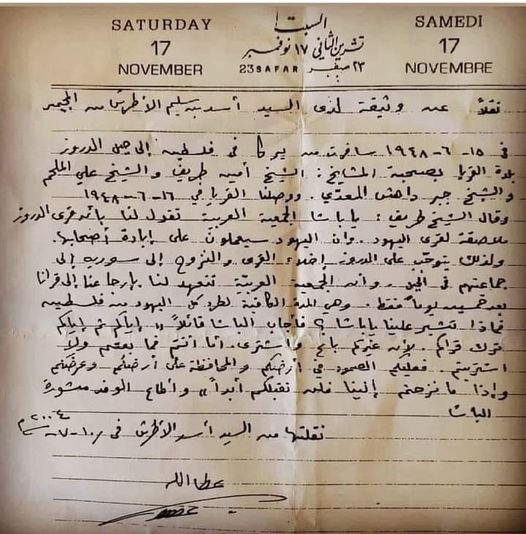 SATURDAY السبت SAMEDI
17 تشرين الثاني ١٧ نوفمبر 17
NOVEMBER 23 SAFAR ٢٣ صفر NOVEMBRE
نقلاً عن وثيقة لدى السيد أسد سليم الأطرش من المجيمر
في ١٥-٦-١٩٤٨ سافرت من يركا في فلسطين إلى جبل الدروز
بلدة القريا بصحبة المشايخ: الشيخ أمين طريف والشيخ علي الملحم
والشيخ جبر داهش المعدي. ووصلنا القريا في ١٦-٦-١٩٤٨
وقال الشيخ طريف: يا باشا الجمعية العربية تقول لنا بأن قرى الدروز
ملاصقة لقرى اليهود. وان اليهود سيعملون على إبادة أصحابها.
ولذلك يتوجب على الدروز إخلاء القرى والنزوح إلى سورية إلى
جماعتهم في الجبل. وأن الجمعية العربية تتعهد لنا بإرجاعنا إلى قرانا
بعد خمسين يوماً فقط. وهي المدة الكافية لطرد كل اليهود من فلسطين
فماذا تشير علينا يا باشا؟ فأجاب الباشا قائلاً: «إياكم ثم إياكم
ترك قراكم لأن غيركم باع واشترى. أما أنتم فما بعتم ولا
اشتريتم. فعليكم الصمود في أرضكم والمحافظة على أرضكم وعرضكم
وإذا ما نزحتم إلينا فلن نقبلكم أبداً» وأطاع الوفد مشورة
الباشا
نقلتها من السيد أسد الأطرش في ٢٠٠٤م
عطا الله